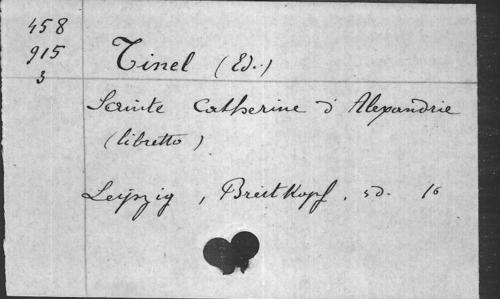 458
915
3
Tinel (Ed.)
Sainte Catherine d'Alexandrie
(libretto)
Leipzig, Breitkopf. sd. 16